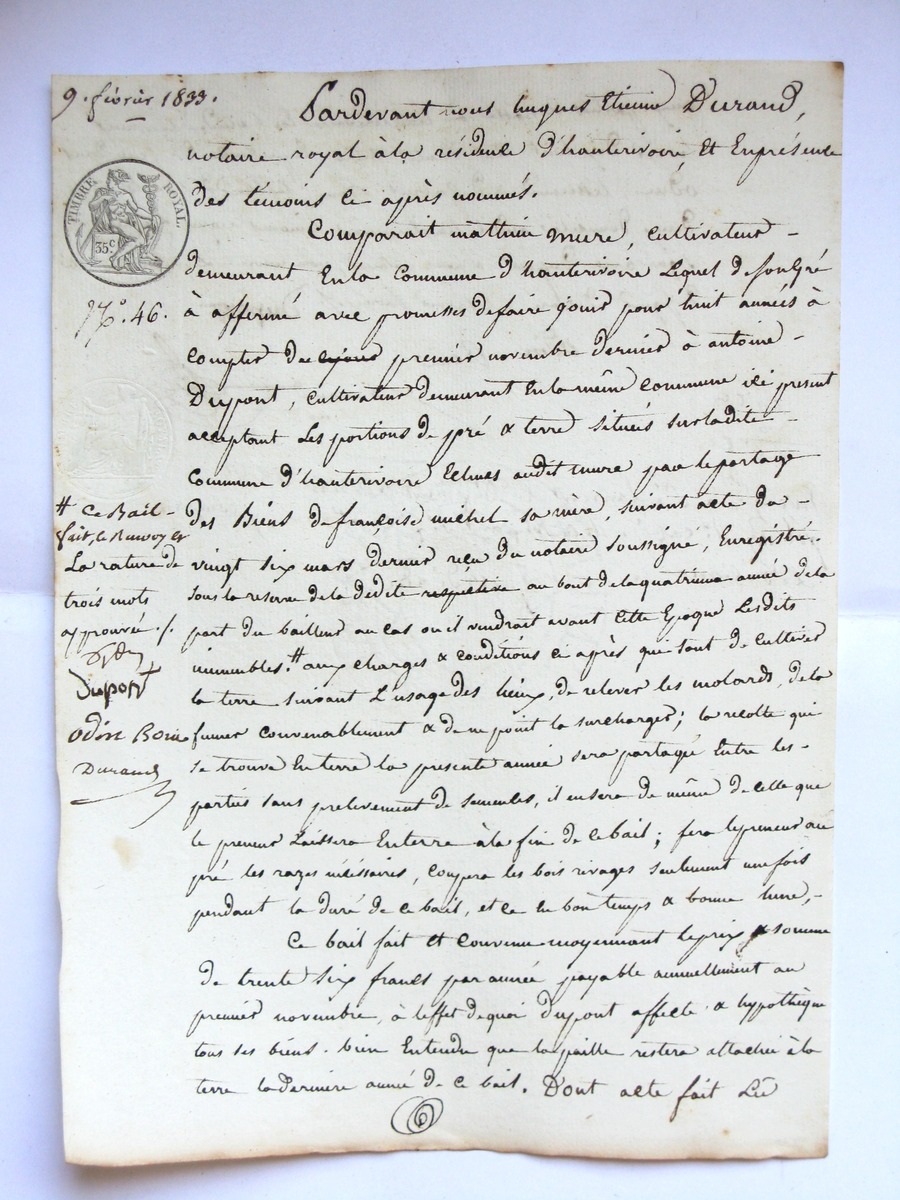 9. février 1833.
Pardevant nous hugues Etienne Durand,
notaire royal à la résidence d'hauterivoire, Et En présence
des témoins ci après nommés.
TIMBRE ROYAL.
35 C
Comparait mathieu mure, cultivateur -
demeurant En la Commune d'hauterivoire Lequel de son Gré
N.º 46.
à affermé avec promesses de faire jouir pour huit années à
compter du ce jour premier novembre dernier à antoine -
Dupont, cultivateur demeurant En la même commune ici present
acceptant Les portions de pré & terre situés sur la dite -
Commune d'hauterivoire Echues audit mure par le partage
des Biens de françoise michel sa mère, suivant acte du -
vingt six mars dernier reçu du notaire soussigné, Enregistré.
sous la reserve de la dédite respective au bout de la quatrieme année de la
part du bailleur au cas ou il vendrait avant cette Epoque Lesdits
immeubles. # aux charges & conditions ci après qui sont de cultiver
la terre suivant L'usage des lieux, de relever les molards, de la
fumer convenablement & de ne point la surcharger; la recolte qui
se trouve En terre la presente année sera partagée Entre les -
parties sans prelevement de semences, il en sera de même de celle que
le preneur Laissera En terre à la fin de ce bail; fera le preneur au
pré les razes nécéssaires, coupera les bois rivages seulement une fois
pendant la duré de ce bail, et ce En bon temps & bonne lune, -
Ce bail fait Et convenu moyennant le prix & somme
de trente six francs par année payable annuellement au
premier novembre, à l'effet de quoi dupont affecte & hypothèque
tous ses biens. bien Entendu que la paille restera attachée à la
terre la dernière année de ce bail. Dont acte fait Lû
# Ce Bail -
fait, le Renvoy Et
La rature de
trois mots
approuvée ./.
Dupont
odin Boin
Durand